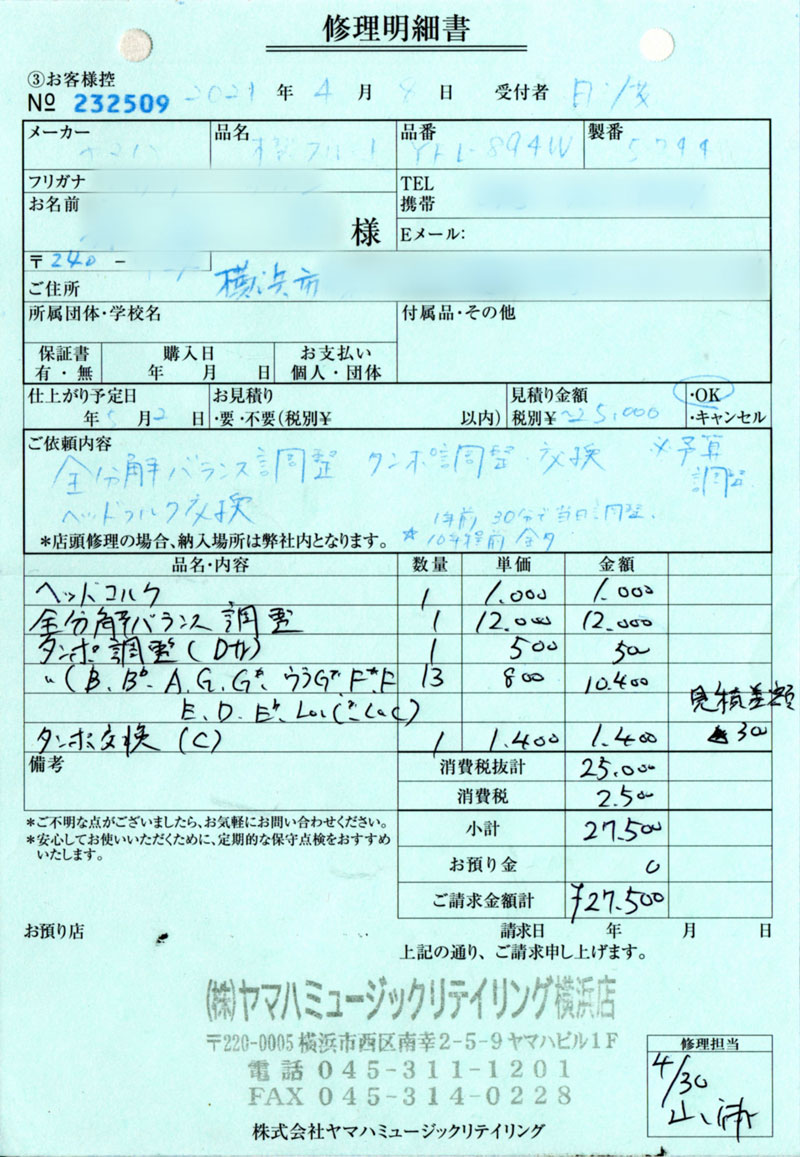 修理明細書
③お客様控
№ 232509 2021 年 4 月 8 日 受付者
メーカー ヤマハ 品名 フルート 品番 YFL-894W 製番
フリガナ
TEL
お名前 様 携帯
Eメール:
〒240-
ご住所 横浜市
所属団体・学校名 付属品・その他
保証書 購入日 お支払い
有・無 年 月 日 個人・団体
仕上がり予定日 お見積り 見積り金額 ・OK
年 5 月 2 日 ・要・不要(税別¥ 以内) 税別¥ ~25,000 ・キャンセル
ご依頼内容
全分解バランス調整 タンポ調整・交換 ※予算
調整
ヘッドコルク交換
1年前 30分で当日調整.
*店頭修理の場合、納入場所は弊社内となります。 ☆10年程前
品名・内容 数量 単価 金額
ヘッドコルク 1 1.000 1.000
全分解バランス調整 1 12.000 12.000
タンポ調整 1 500 500
〃(B、B♭、A、G、G#、ウラG#、F#、F 13 800 10.400
E、D、E♭、LowC#、LowC) 見積差額
タンポ交換(C) 1 1.400 1.400 300
備考 消費税抜計 25.000
消費税 2.500
*ご不明な点がございましたら、お気軽にお問い合わせください。
*安心してお使いいただくために、定期的な保守点検をおすすめ
いたします。
小計 27.500
お預り金 0
ご請求金額計 ¥27.500
お預り店 請求日 年 月 日
上記の通り、ご請求申し上げます。
(株)ヤマハミュージックリテイリング横浜店
〒220-0005 横浜市西区南幸2-5-9ヤマハビル1F
電話 045-311-1201
FAX 045-314-0228
株式会社ヤマハミュージックリテイリング
修理担当
4/30